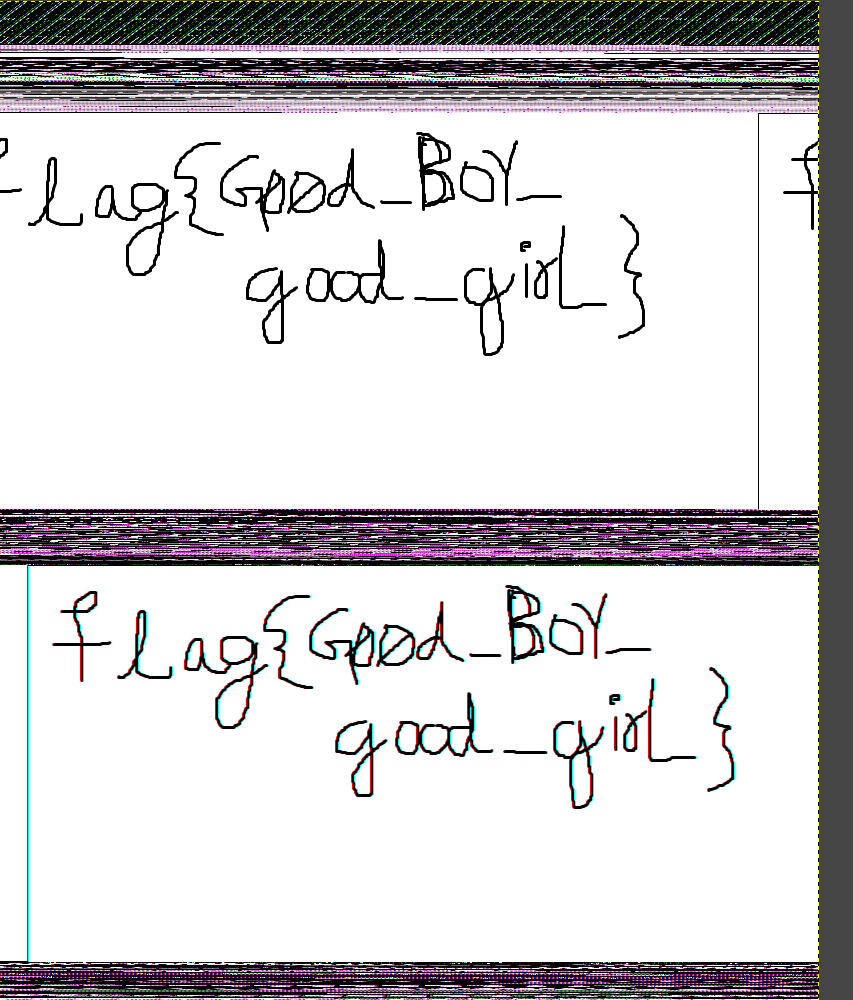 flag{G00d_BoY_
good_girL_}
flag{G00d_BoY_
good_girL_}